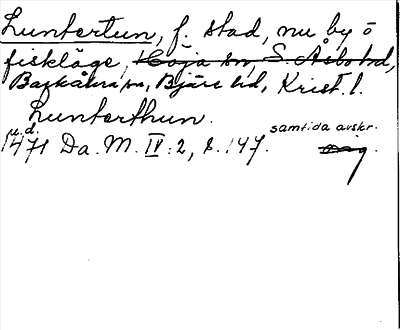 Luntertun, f. stad, nu by o
fiskläge, Höja sn, S. Åsbo hd,
Barkåkra sn, Bjäre hd, Krist. l.
Lunterthun.
u.d. samtida avskr.
1471 Da. M. IV: 2, s. 147. orig.